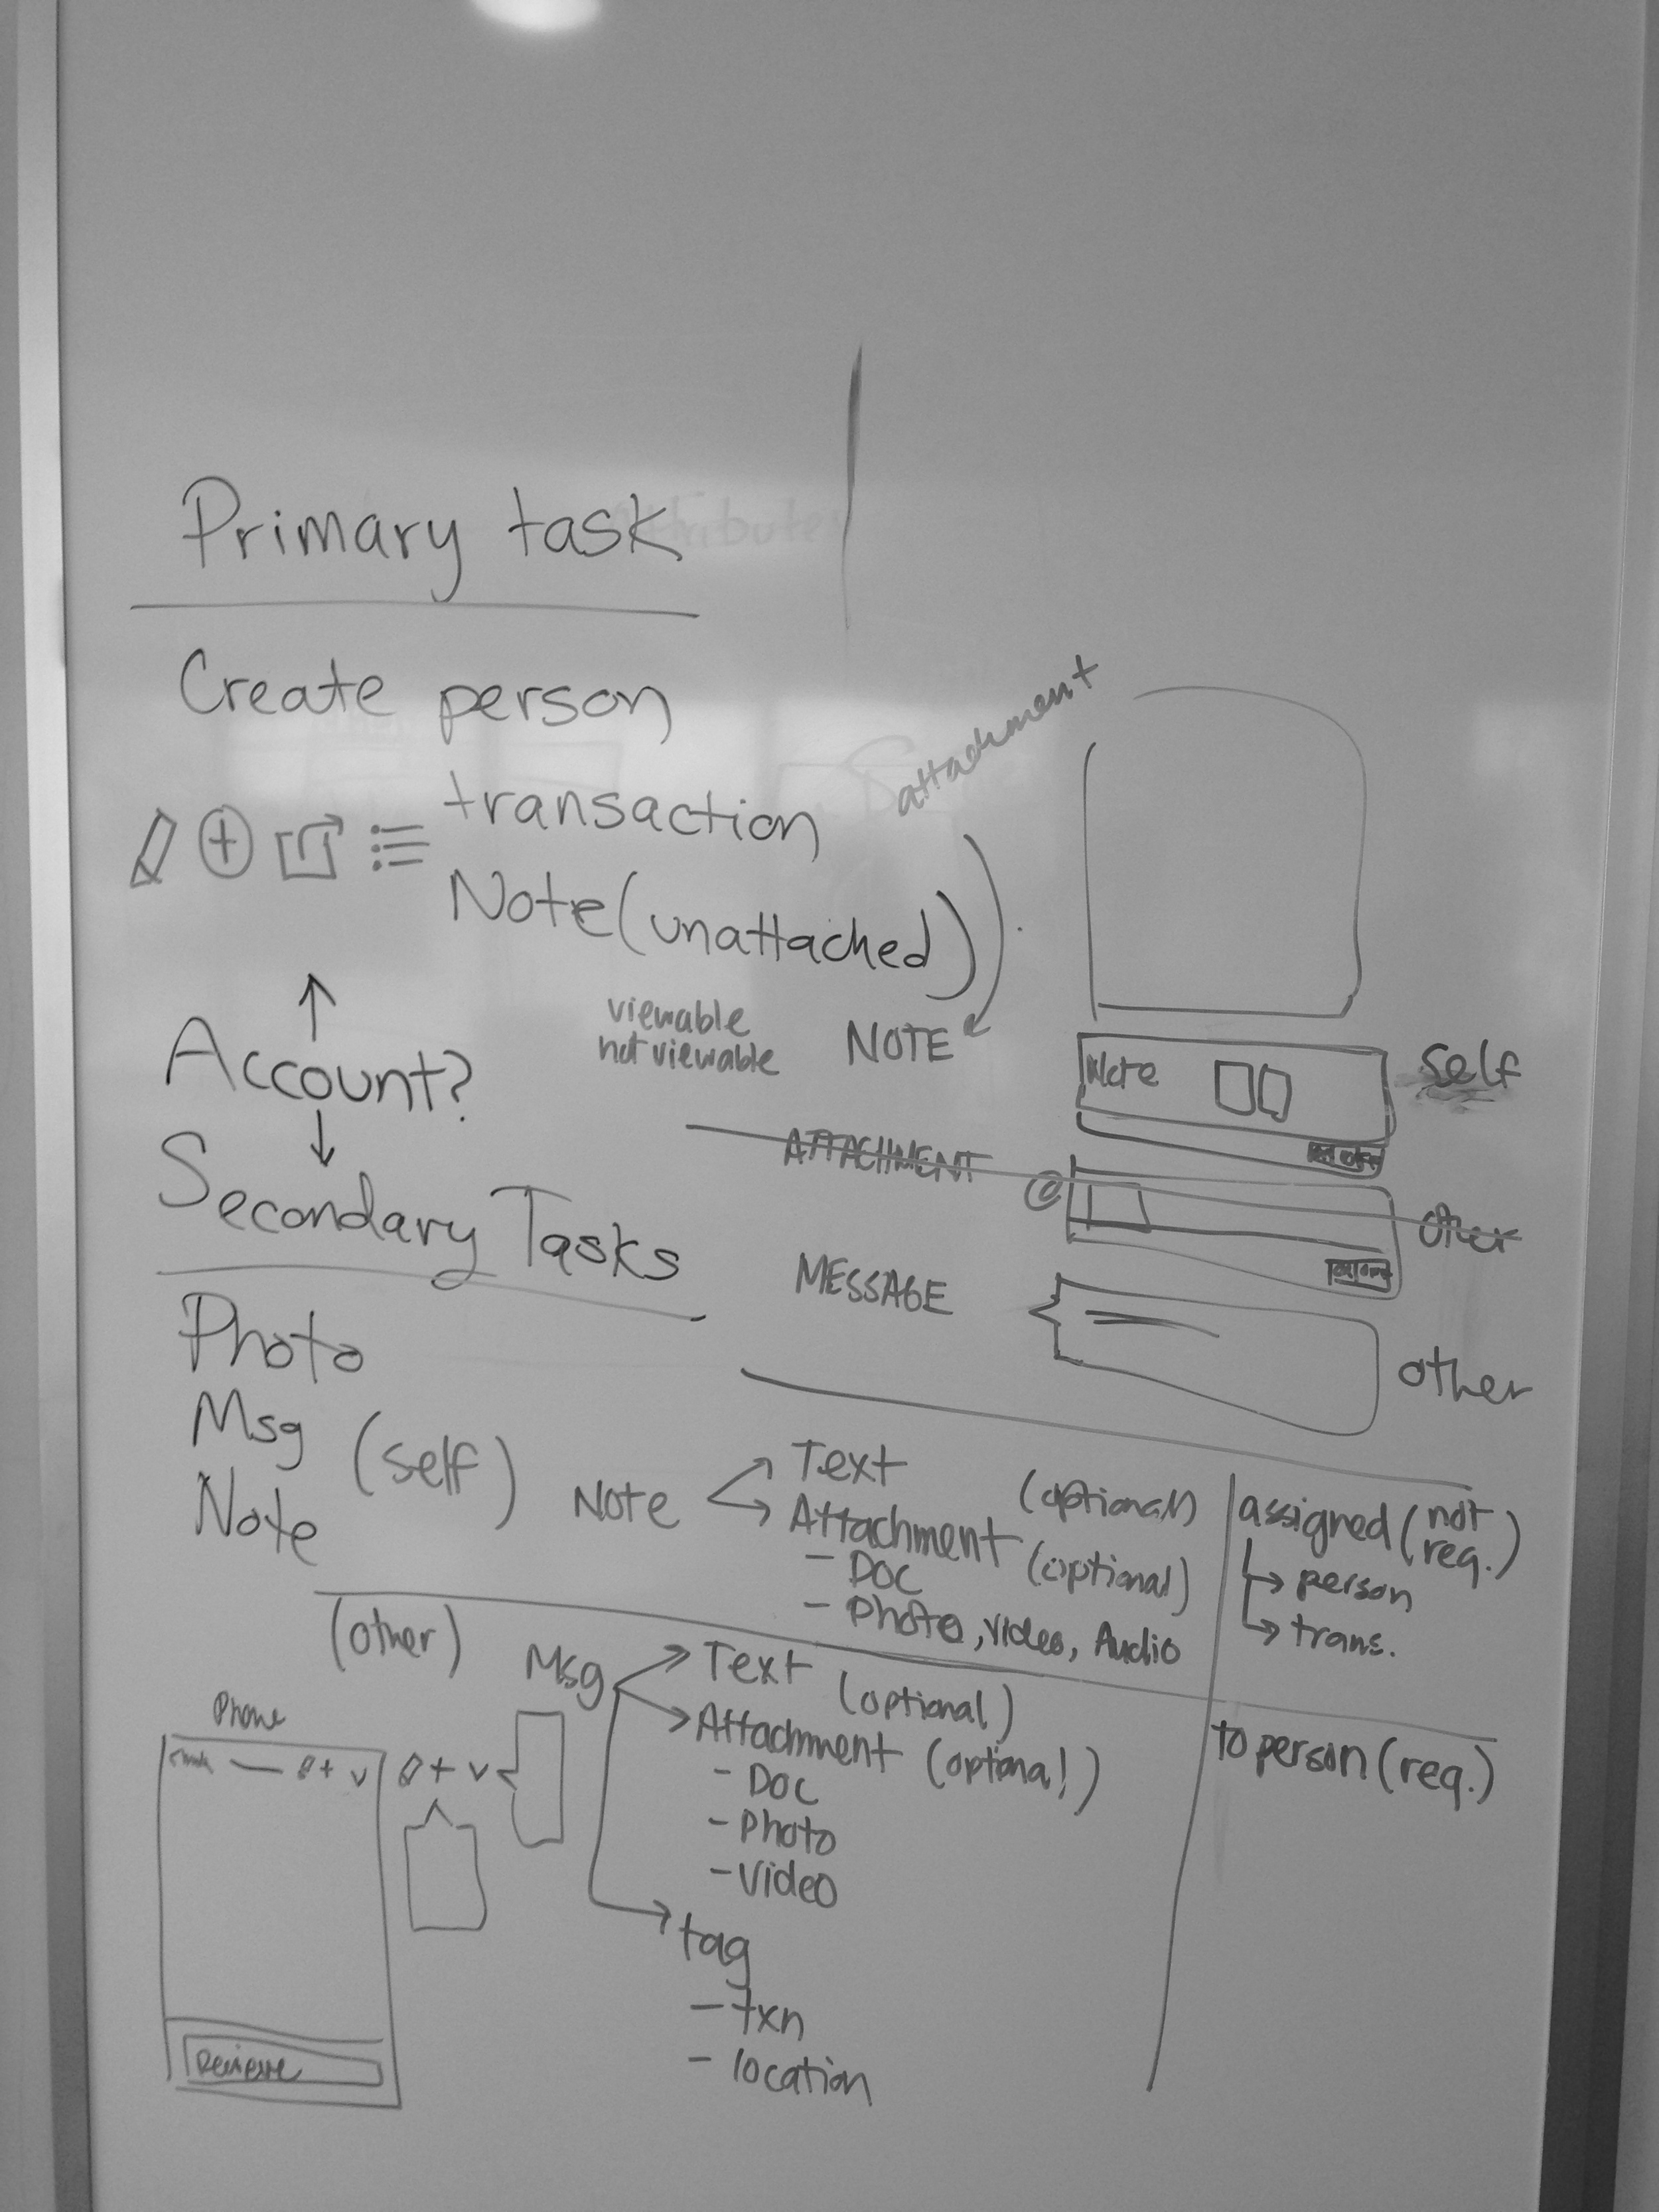 Primary task
Create person
transaction
Note (unattached)
attachment
Account?
viewable
not viewable
NOTE
Note
self
ATTACHMENT
@
other
Secondary Tasks
MESSAGE
other
Photo
Msg
Note
(self)
Note
Text (optional)
Attachment (optional)
- Doc
- Photo, Video, Audio
assigned (not req.)
→ person
→ trans.
(other)
Msg
Text (optional)
Attachment (optional)
- Doc
- Photo
- Video
tag
- txn
- location
to person (req.)
Phone
+ v
+ v